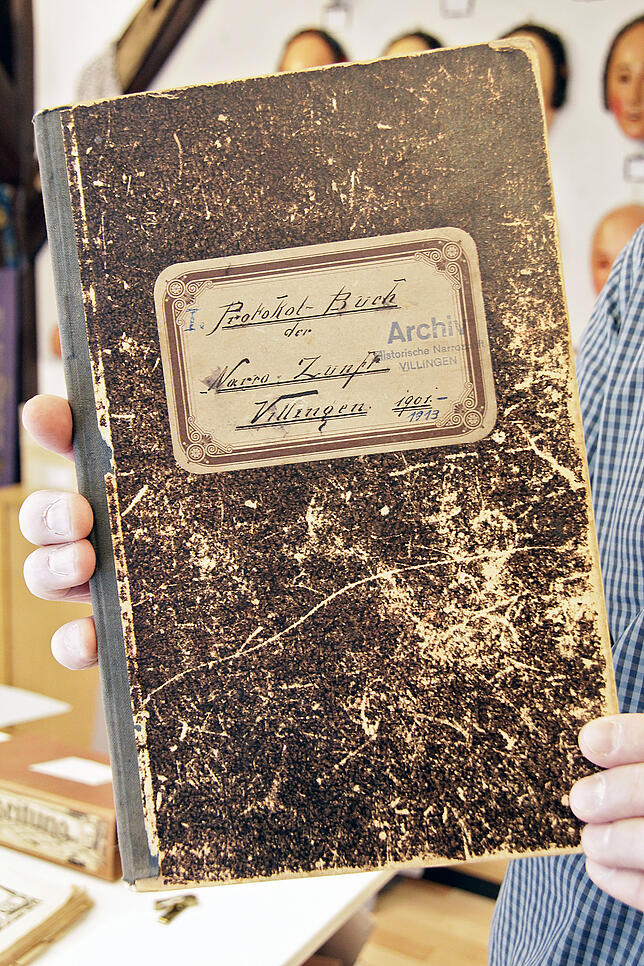 Protokol-Buch
der
Narro-Zunft
Villingen. 1901.-
1913
Archiv
Historische Narrozunft
VILLINGEN